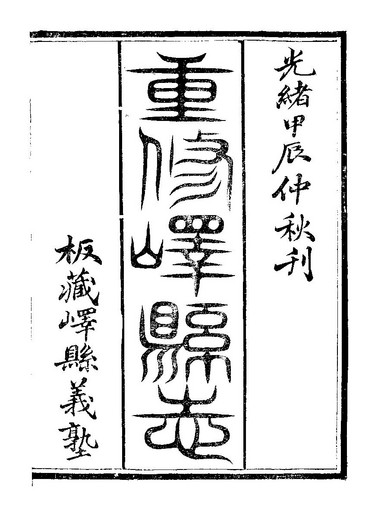 光緒甲辰仲秋刊
重修嶧縣志
板藏嶧縣義塾